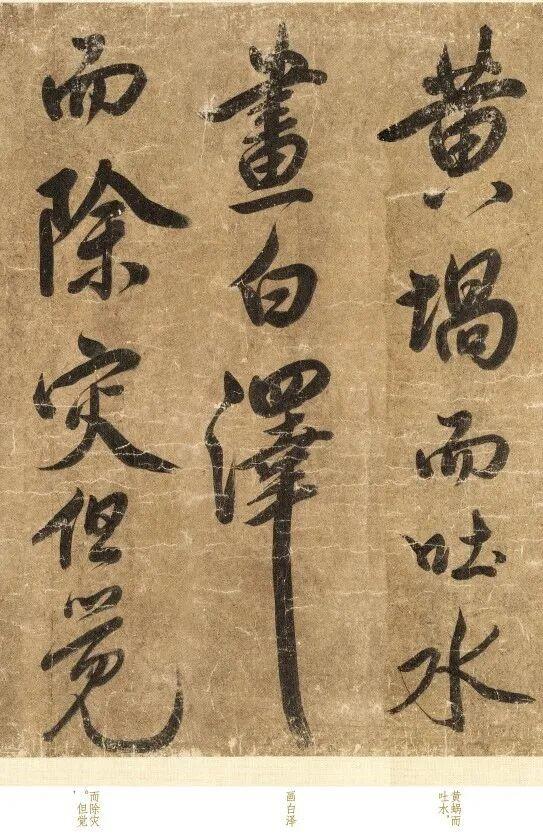 黄堝而吐水
畫白澤
而除灾但觉
黄蜗而
吐水，
画白泽
而除灾
。但觉
，